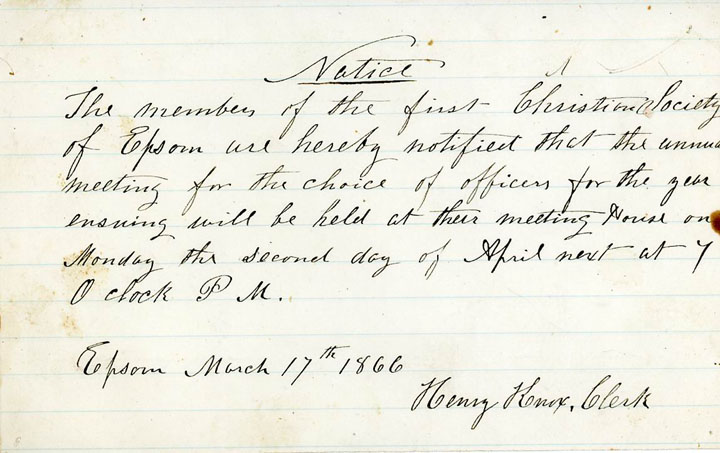 Notice
The members of the first Christian Society
of Epsom are hereby notified that the annua
meeting for the choice of officers for the year
ensuing will be held at their meeting House on
Monday the second day of April next at 7
O clock P M.
Epsom March 17th 1866
Henry Knox, Clerk